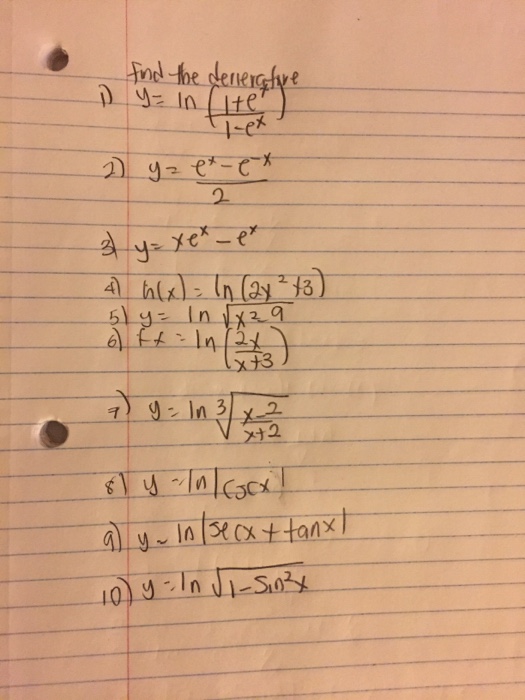 Find the derierative
1) y = ln (1+eˣ / 1-eˣ)
2) y = eˣ - e⁻ˣ / 2
3) y = xeˣ - eˣ
4) h(x) = ln (2x² + 3)
5) y = ln √x² - 9
6) fx = ln (2x / x+3)
7) y = ln ³√x-2 / x+2
8) y = ln |cscx|
9) y = ln |secx + tanx|
10) y = ln √1 - Sin²x